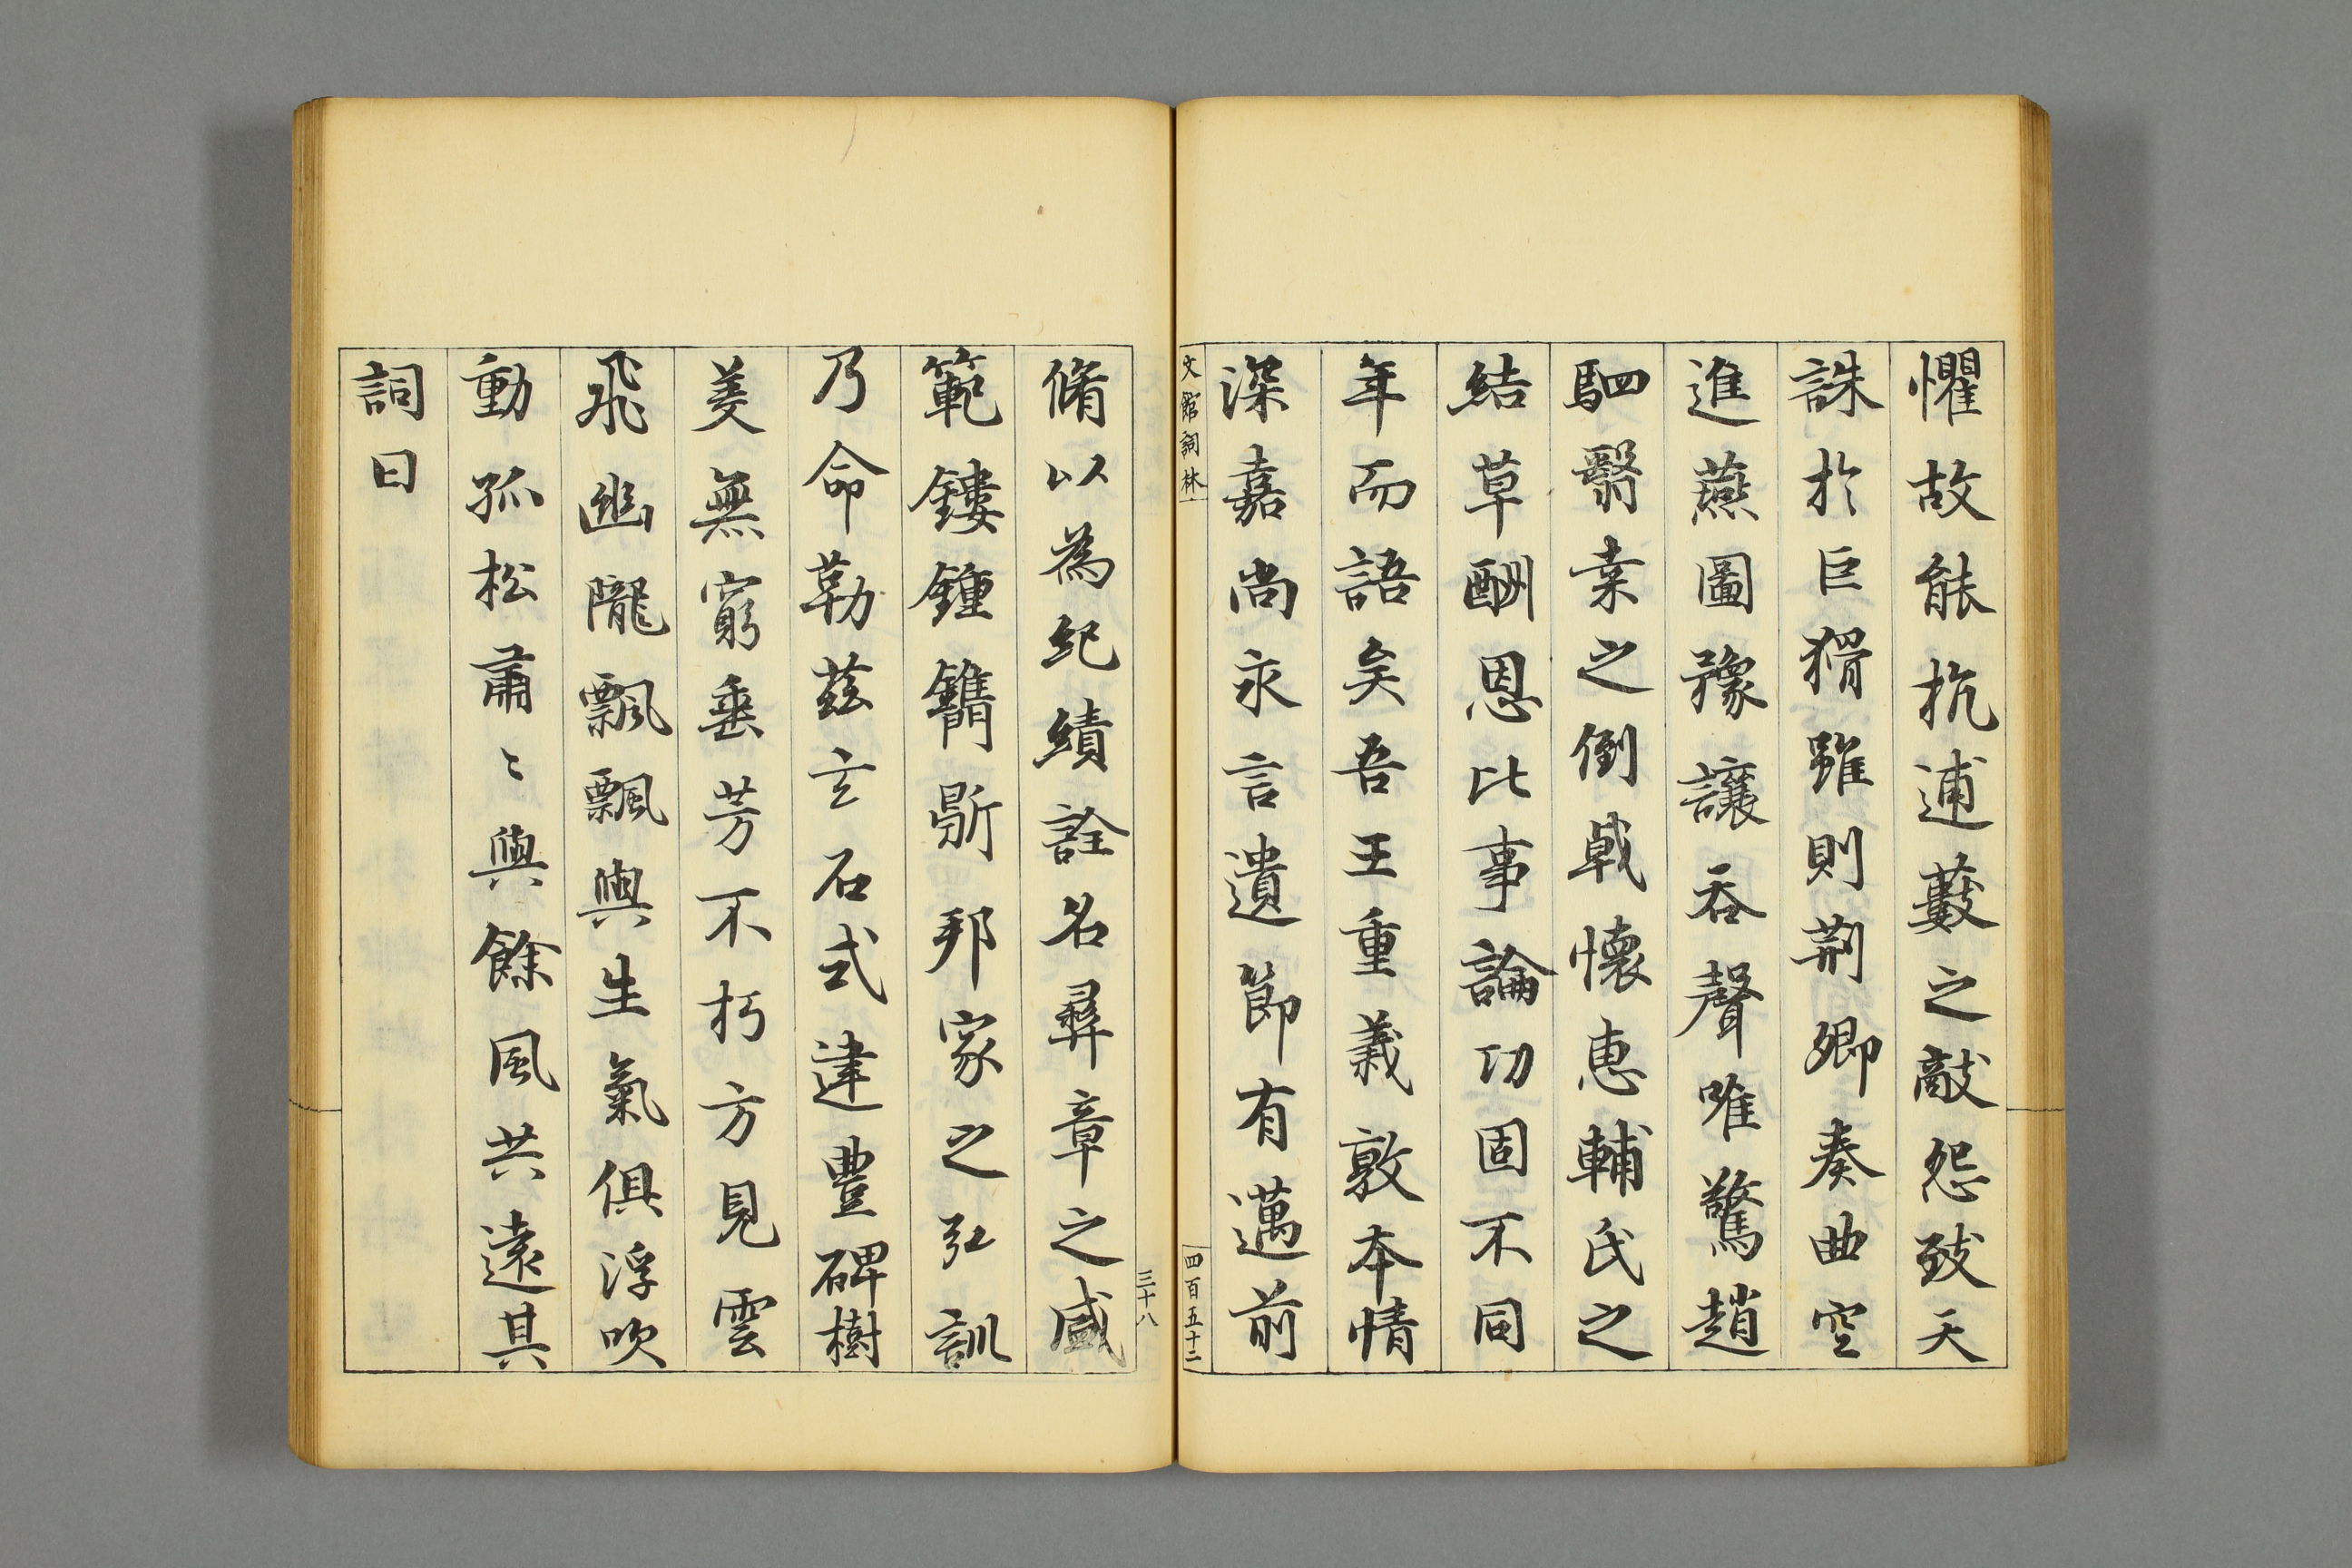 懼故能抗逋藪之敵怨致天
誅於巨猾雖則荆卿奏曲空
進燕圖豫讓呑聲唯驚趙
駟翳桒之倒戟懷恵輔氏之
結草酬恩比事論功固不同
年而語矣吾王重義敦本情
深嘉尚永言遺節有邁前
文館詞林
四百五十二
三十八
脩以為紀績詮名彛章之盛
範鏤鍾鐫鼎邦家之弘訓
乃命勒茲玄石式建豊碑樹
美無窮垂芳不朽方見雲
飛幽隴飄飄與生氣俱浮吹
動孤松肅〻與餘風共遠其
詞曰